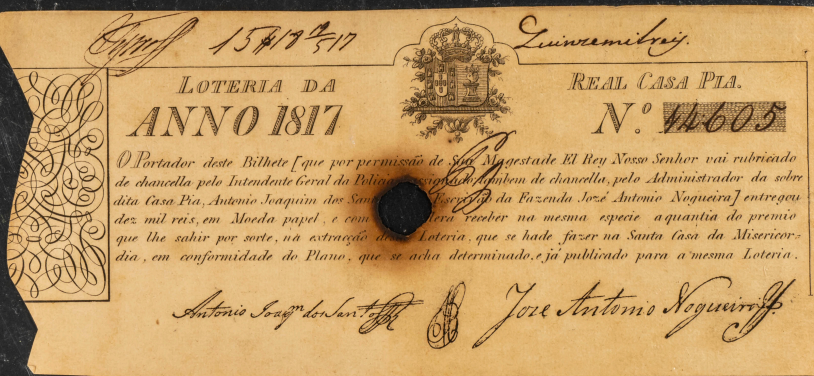 Quinzemilreis.
LOTERIA DA REAL CASA PIA.
ANNO 1817 N.º 14605
O Portador deste Bilhete [que por permissão de Sua Magestade El Rey Nosso Senhor vai rubricado
de chancella pelo Intendente Geral da Policia tambem de chancella, pelo Administrador da sobre
dita Casa Pia, Antonio Joaquim dos Escrivão da Fazenda Jozé Antonio Nogueira] entregou
dez mil reis, em Moeda papel, e com receber na mesma especie a quantia do premio
que lhe sahir por sorte, na extracção Loteria, que se hade fazer na Santa Casa da Misericor=
dia, em conformidade do Plano, que se acha determinado, e já publicado para a mesma Loteria.
Antonio Joaqm dos Santos Joze Antonio Nogueira